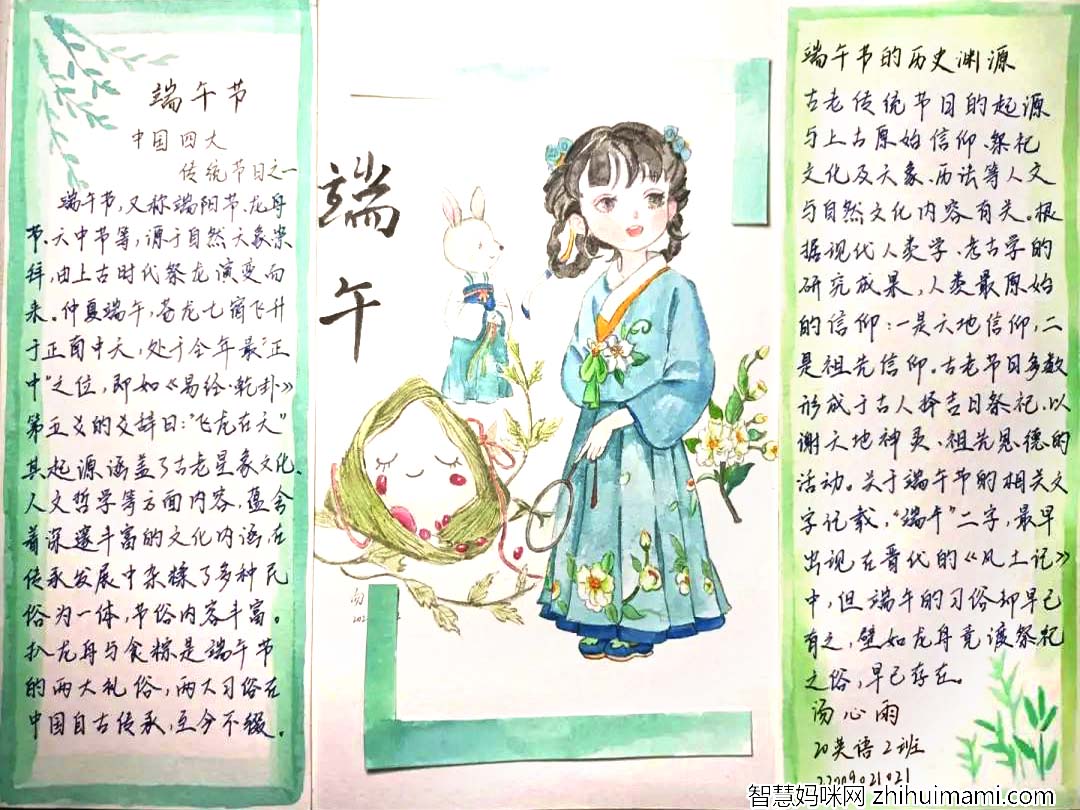 端午节
中国四大
传统节日之一
端午节,又称端阳节、龙舟
节、天中节等,源于自然天象崇
拜,由上古时代祭龙演变而
来。仲夏端午,苍龙七宿飞升
于正南中天,处于全年最"正
中"之位,即如《易经·乾卦》
第五爻的爻辞曰:"飞龙在天"
其起源涵盖了古老星象文化、
人文哲学等方面内容,蕴含
着深邃丰富的文化内涵,在
传承发展中杂糅了多种民
俗为一体,节俗内容丰富。
扒龙舟与食粽是端午节
的两大礼俗,两大习俗在
中国自古传承,至今不辍。
端
午
端午节的历史渊源
古老传统节日的起源
与上古原始信仰、祭祀
文化及天象、历法等人文
与自然文化内容有关。根
据现代人类学、考古学的
研究成果,人类最原始
的信仰:一是天地信仰,二
是祖先信仰。古老节日多数
形成于古人择吉日祭祀,以
谢天地神灵、祖先恩德的
活动。关于端午节的相关文
字记载,"端午"二字,最早
出现在晋代的《风土记》
中,但端午的习俗却早已
有之,譬如龙舟竞渡祭祀
之俗,早已存在。
汤心雨
20英语2班
智慧妈咪网 zhihuimami.com